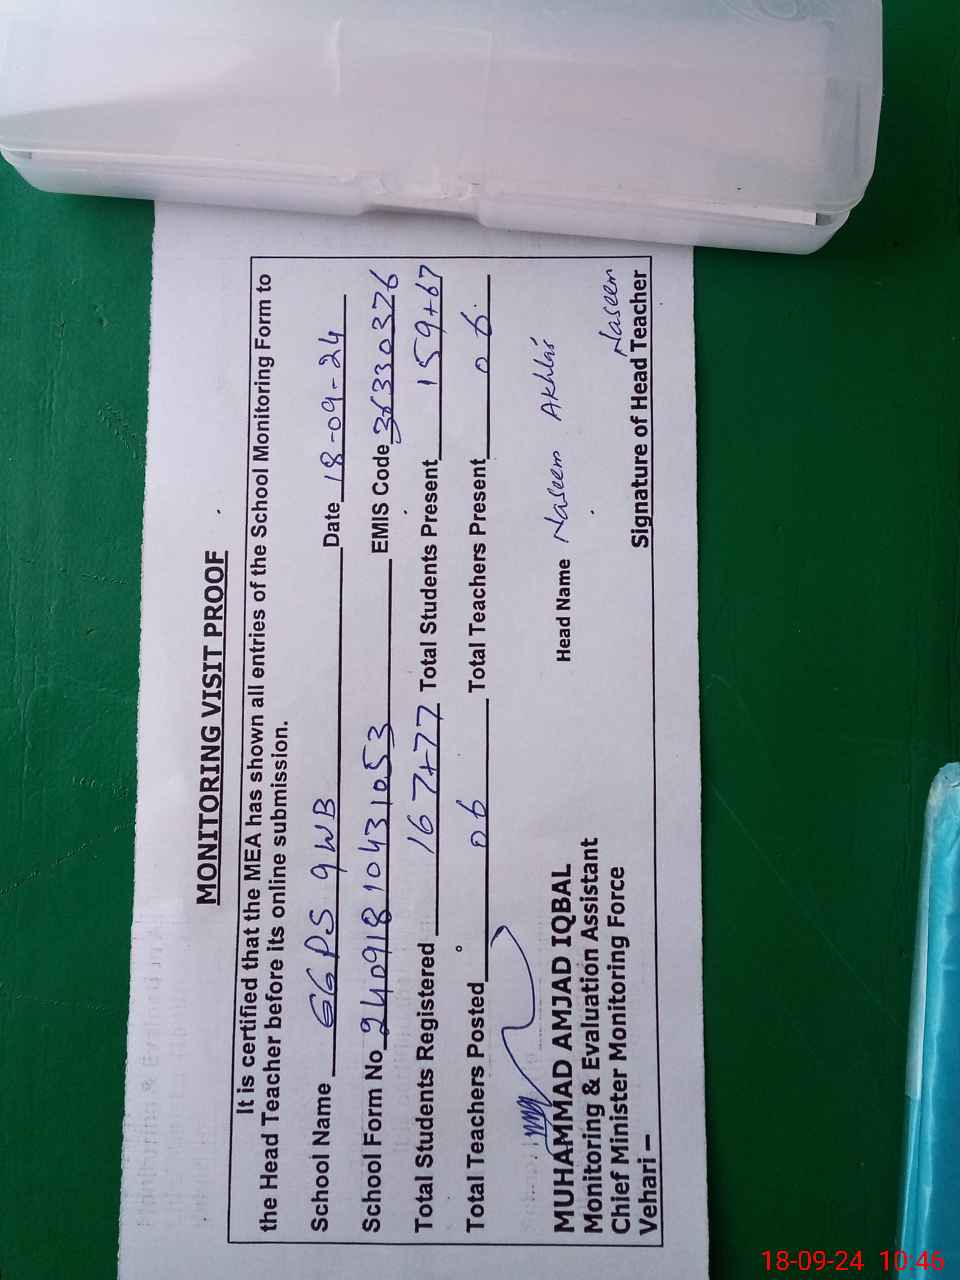 MONITORING VISIT PROOF
It is certified that the MEA has shown all entries of the School Monitoring Form to
the Head Teacher before its online submission.
School Name GGPS 9WB Date 18-09-24
School Form No 240918 10431053 EMIS Code 36330326
Total Students Registered 167+77 Total Students Present 159+67
Total Teachers Posted 06 Total Teachers Present 06
Head Name Naseem Akhlas
MUHAMMAD AMJAD IQBAL
Monitoring & Evaluation Assistant
Chief Minister Monitoring Force
Vehari –
Naseem
Signature of Head Teacher
18-09-24 10:46